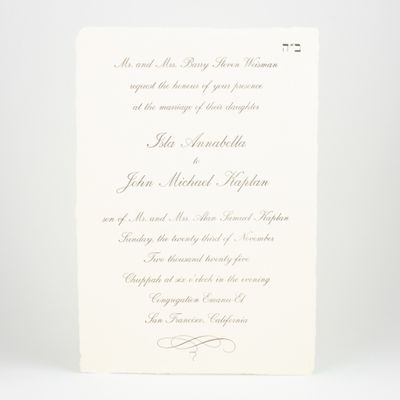 ב״ה
Mr. and Mrs. Barry Steven Weisman
request the honour of your presence
at the marriage of their daughter
Isla Annabella
to
John Michael Kaplan
son of Mr. and Mrs. Alan Samuel Kaplan
Sunday, the twenty third of November
Two thousand twenty-five
Chuppah at six o'clock in the evening
Congregation Emanu-El
San Francisco, California